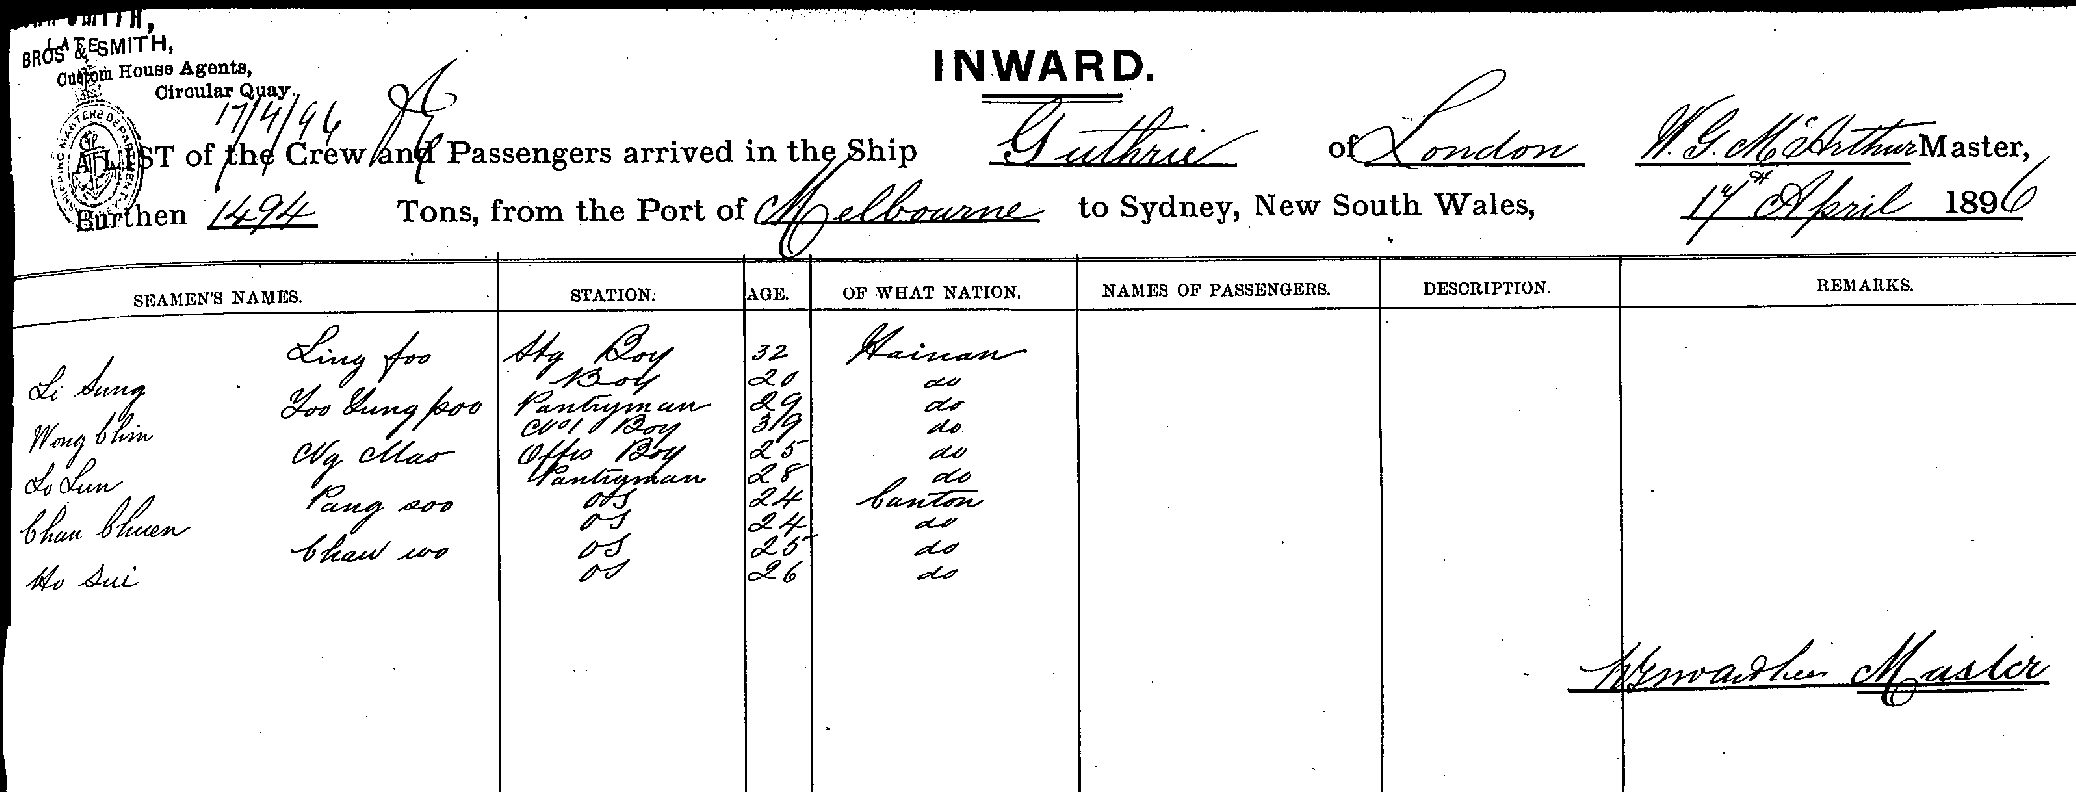 SMITH,
LATE
BROS & SMITH,
Custom House Agents,
Circular Quay.
17/4/96
INWARD.
A LIST of the Crew and Passengers arrived in the Ship Guthrie of London W. G. McArthur Master,
Burthen 1494 Tons, from the Port of Melbourne to Sydney, New South Wales, 17th April 1896
SEAMEN'S NAMES. STATION. AGE. OF WHAT NATION. NAMES OF PASSENGERS. DESCRIPTION. REMARKS.
Ling foo Stg Boy 32 Hainan
Li Sung Boy 20 do
Yoo Yung poo Pantryman 29 do
Wong Chim No 1 Boy 39 do
Ng Mao Offrs Boy 25 do
Lo Lun Pantryman 28 do
Pang soo OS 24 Canton
Chan Chuen OS 24 do
Chau wo OS 25 do
Ho Sui OS 26 do
WGMcArthur Master